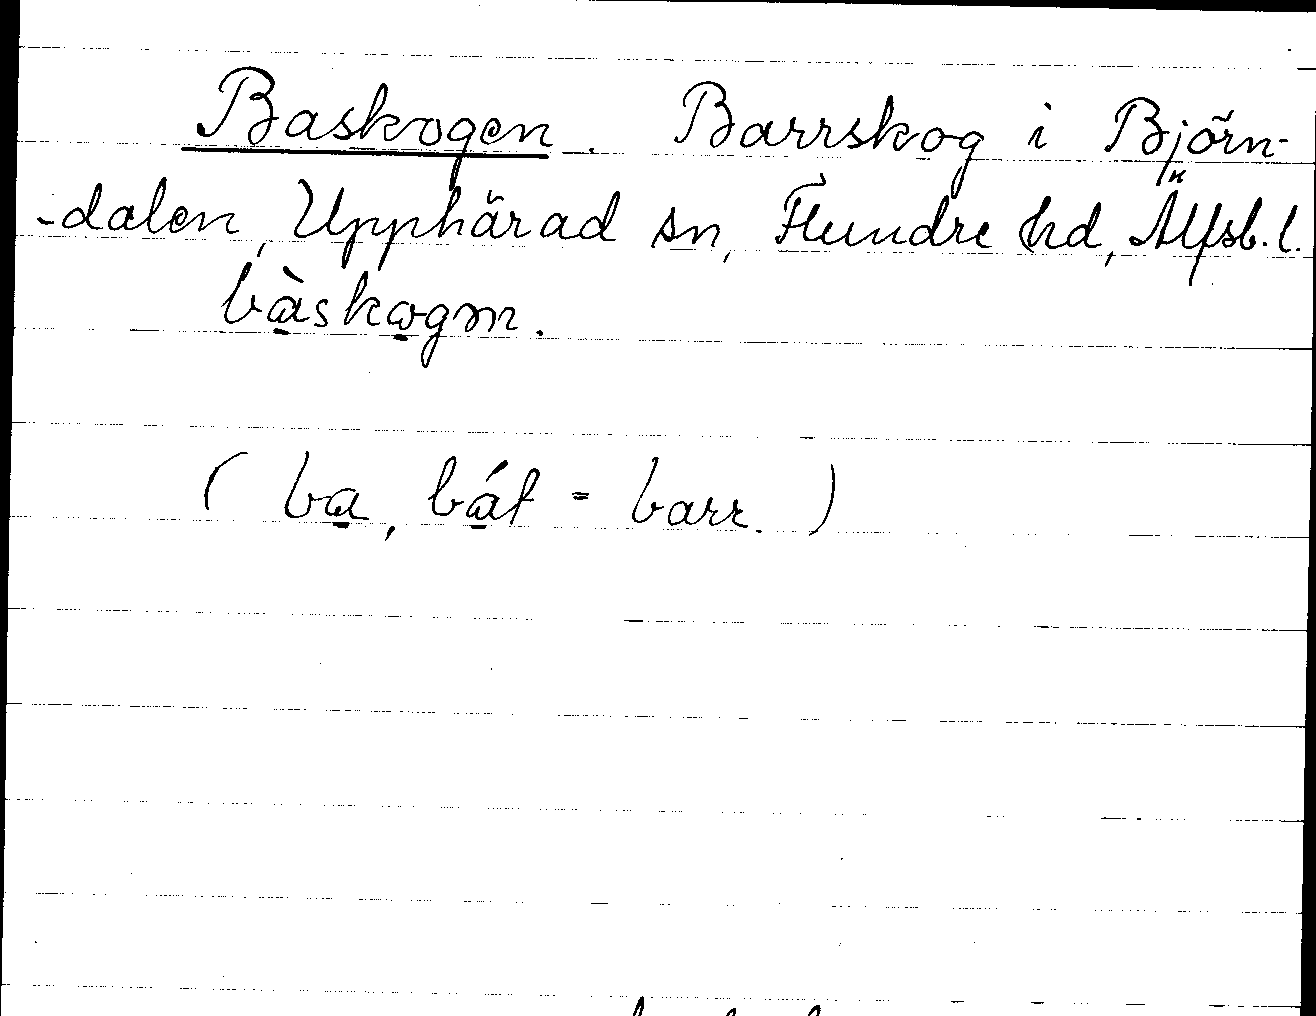 Baskogen. Barrskog i Björn-
-dalen, Upphärad sn, Flundre hd, Älfsb. l.
bàskogm.
( ba, bát = barr. )